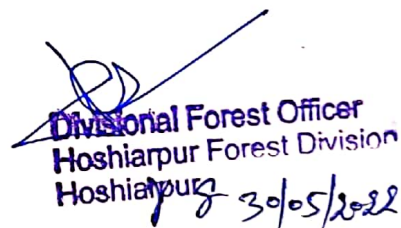 Divisional Forest Officer
Hoshiarpur Forest Division
Hoshiarpur
30/05/2022